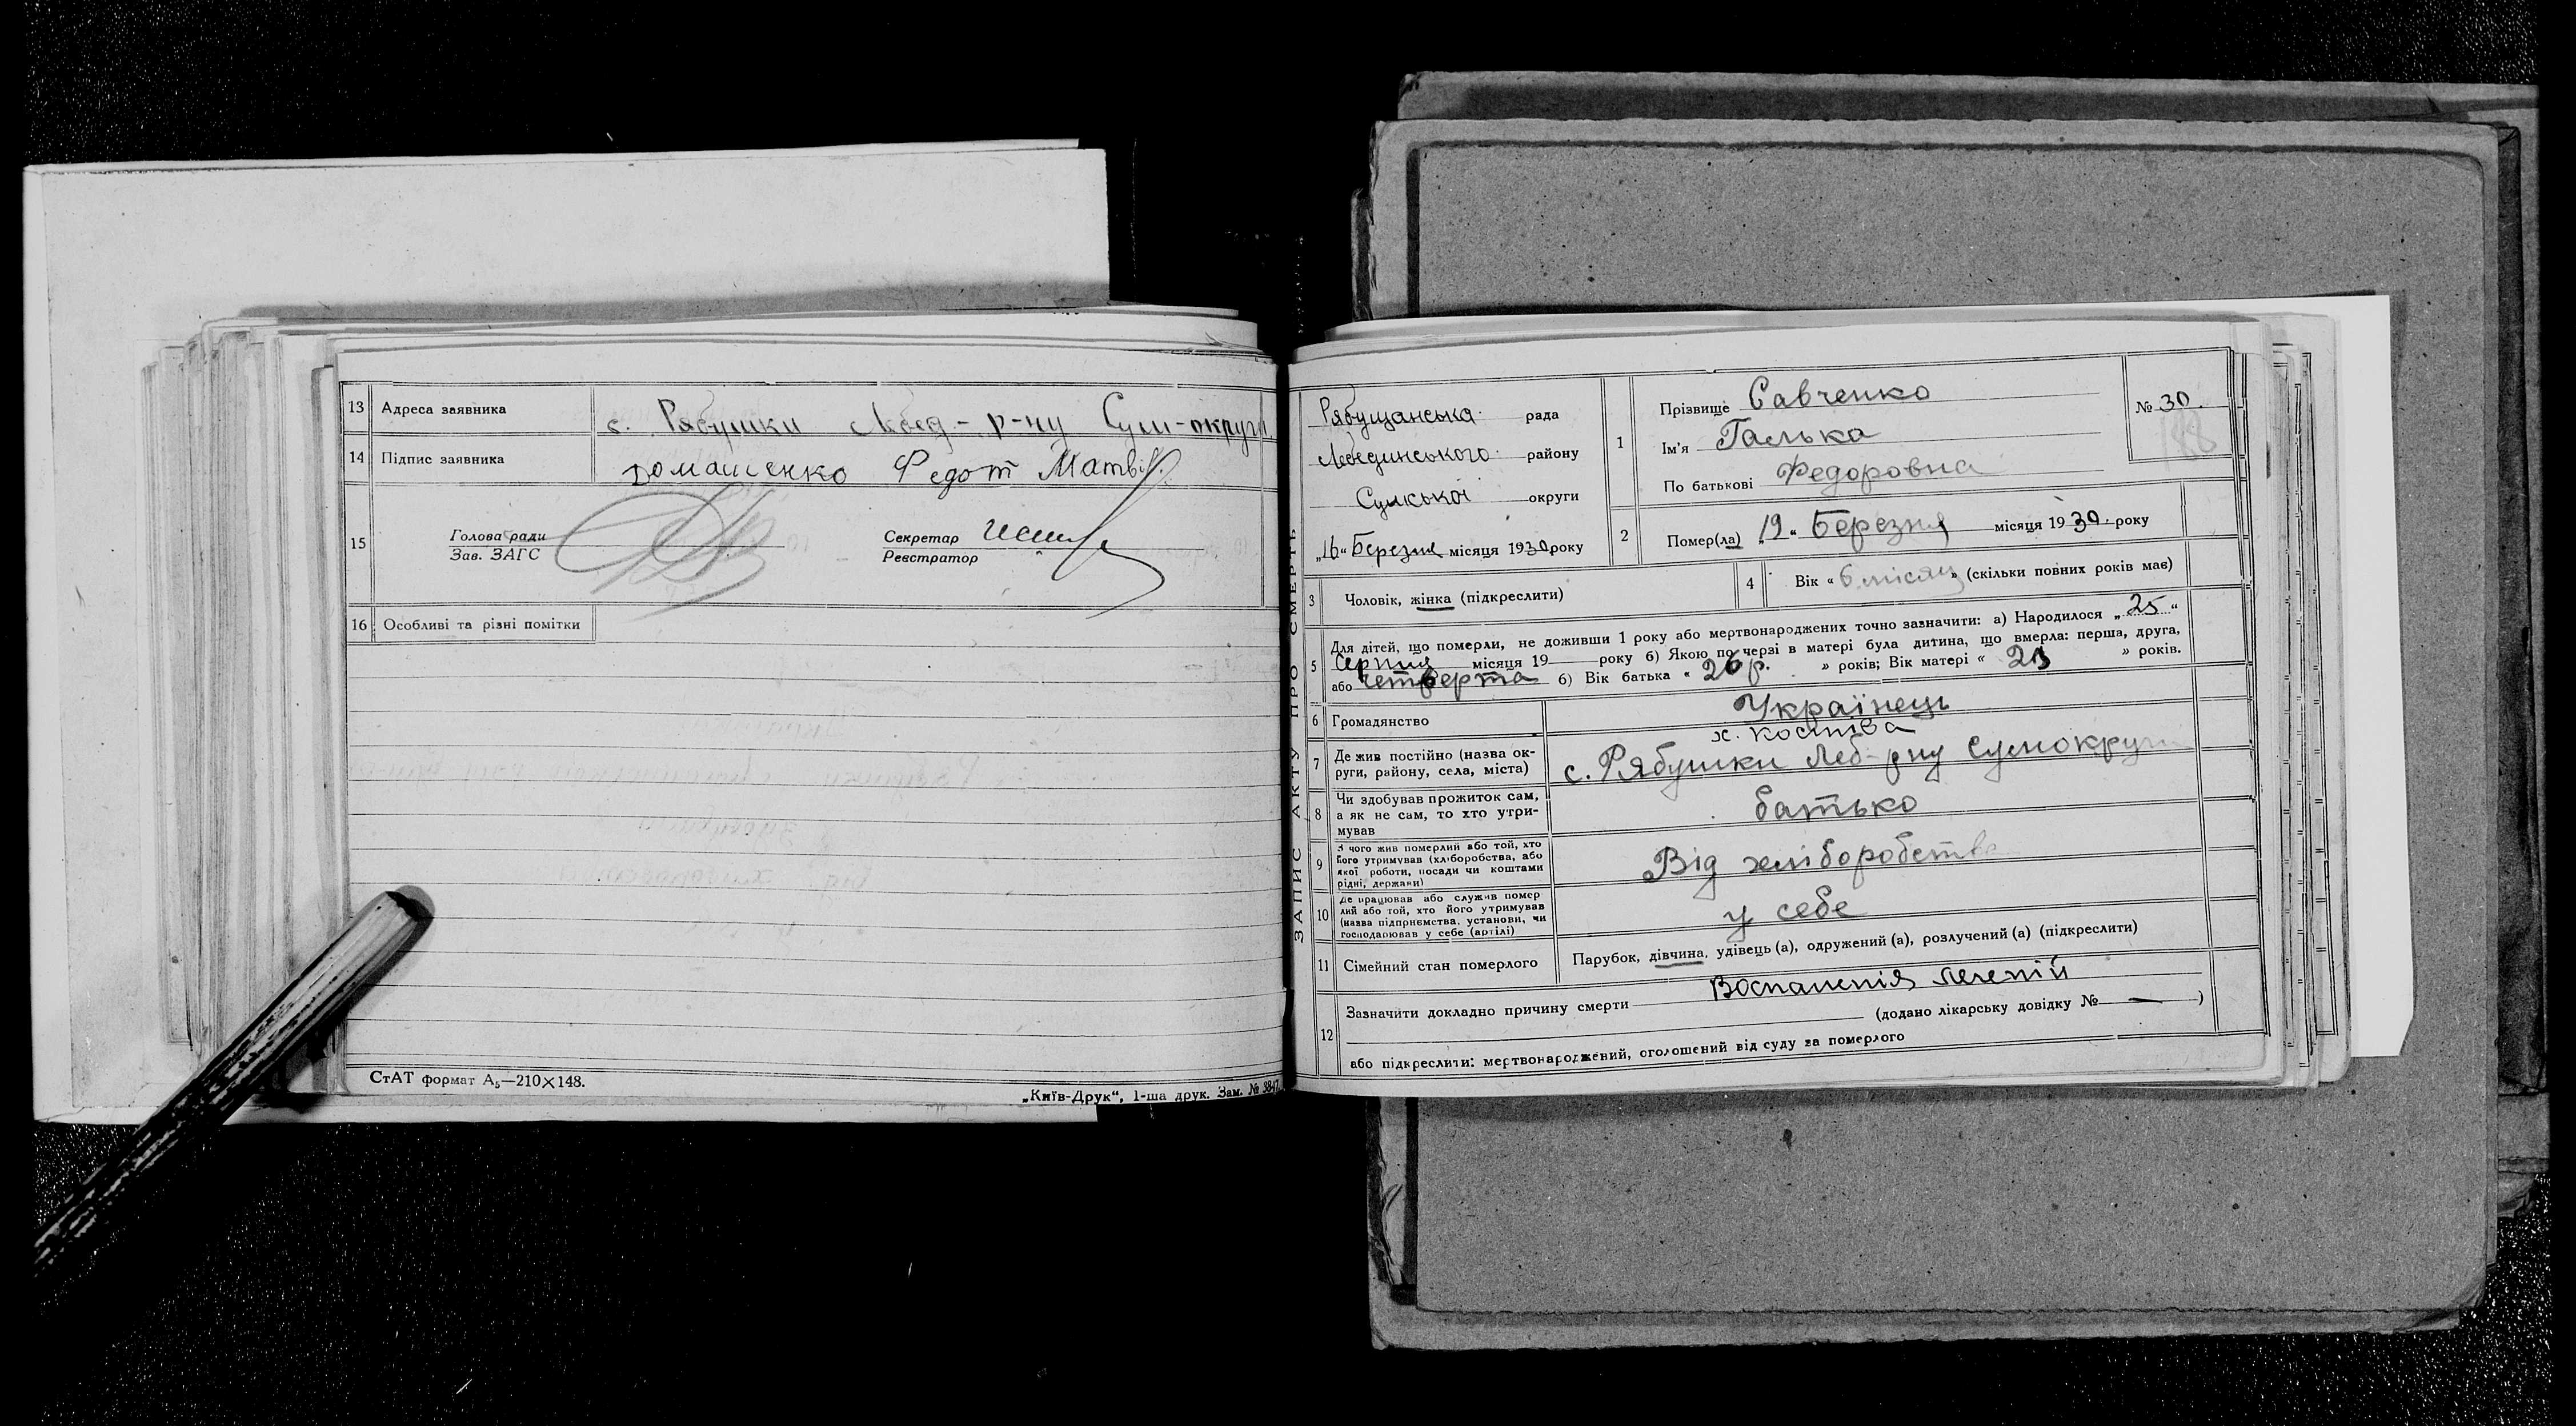 13 Адреса заявника с. Рябушки Лебед.- р-ну Сум-округи
14 Підпис заявника Домашенко Федот Матвій.
15 Голова ради
Зав. ЗАГС
Секретар
Реєстратор
16 Особливі та різні помітки
СтАТ формат А5—210×148.
„Київ-Друк“, 1-ша друк. Зам. № 3847.
ЗАПИС АКТУ ПРО СМЕРТЬ
Рябущанська рада
Лебединського району
Сумської округи
„16“ Березня місяця 1930 року
1 Прізвище Савченко
Ім'я Галька
По батькові Федоровна
№ 30.
188
2 Помер(ла) „12“ Березня місяця 1930. року
3 Чоловік, жінка (підкреслити)
4 Вік « 6 місяц » (скільки повних років має)
5 Для дітей, що померли, не доживши 1 року або мертвонароджених точно зазначити: а) Народилося „ 25 “
Серпня місяця 19 року б) Якою по черзі в матері була дитина, що вмерла: перша, друга,
або четверта б) Вік батька « 26 р. » років; Вік матері « » років.
6 Громадянство Українець
7 Де жив постійно (назва округи, району, села, міста) х. Костіва
с. Рябушки Леб-рну Сумокруги
8 Чи здобував прожиток сам,
а як не сам, то хто утри-
мував батько
9 З чого жив померлий або той, хто
його утримував (хліборобства, або
якої роботи, посади чи коштами
рідні, держави) Від хліборобства
10 Де працював або служив помер
лий або той, хто його утримував
(назва підприємства, установи, чи
господарював у себе (артілі) у себе
11 Сімейний стан померлого Парубок, дівчина, удівець (а), одружений (а), розлучений (а) (підкреслити)
12 Зазначити докладно причину смерти Воспаленія легеній
(додано лікарську довідку № — )
або підкреслити: мертвонароджений, оголошений від суду за померлого